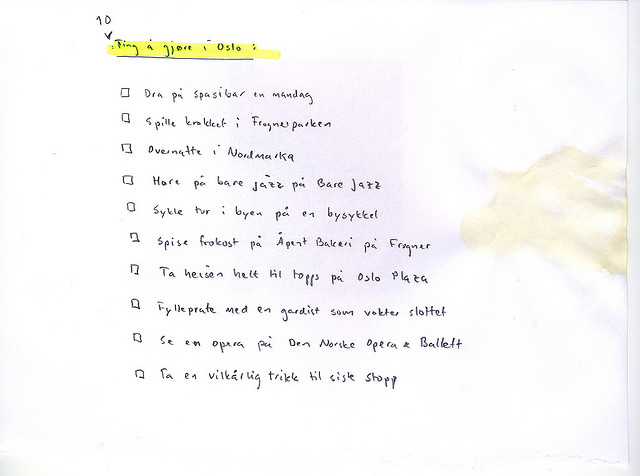 10
Ting å gjøre i Oslo:
Dra på spasibar en mandag
Spille krokket i Frognerparken
Overnatte i Nordmarka
Høre på bare jazz på Bare Jazz
Sykle tur i byen på en bysykkel
Spise frokost på Åpent Bakeri på Frogner
Ta heisen helt til topps på Oslo Plaza
Fylleprate med en gardist som vokter slottet
Se en opera på Den Norske Opera & Ballett
Ta en vilkårlig trikk til siste stopp